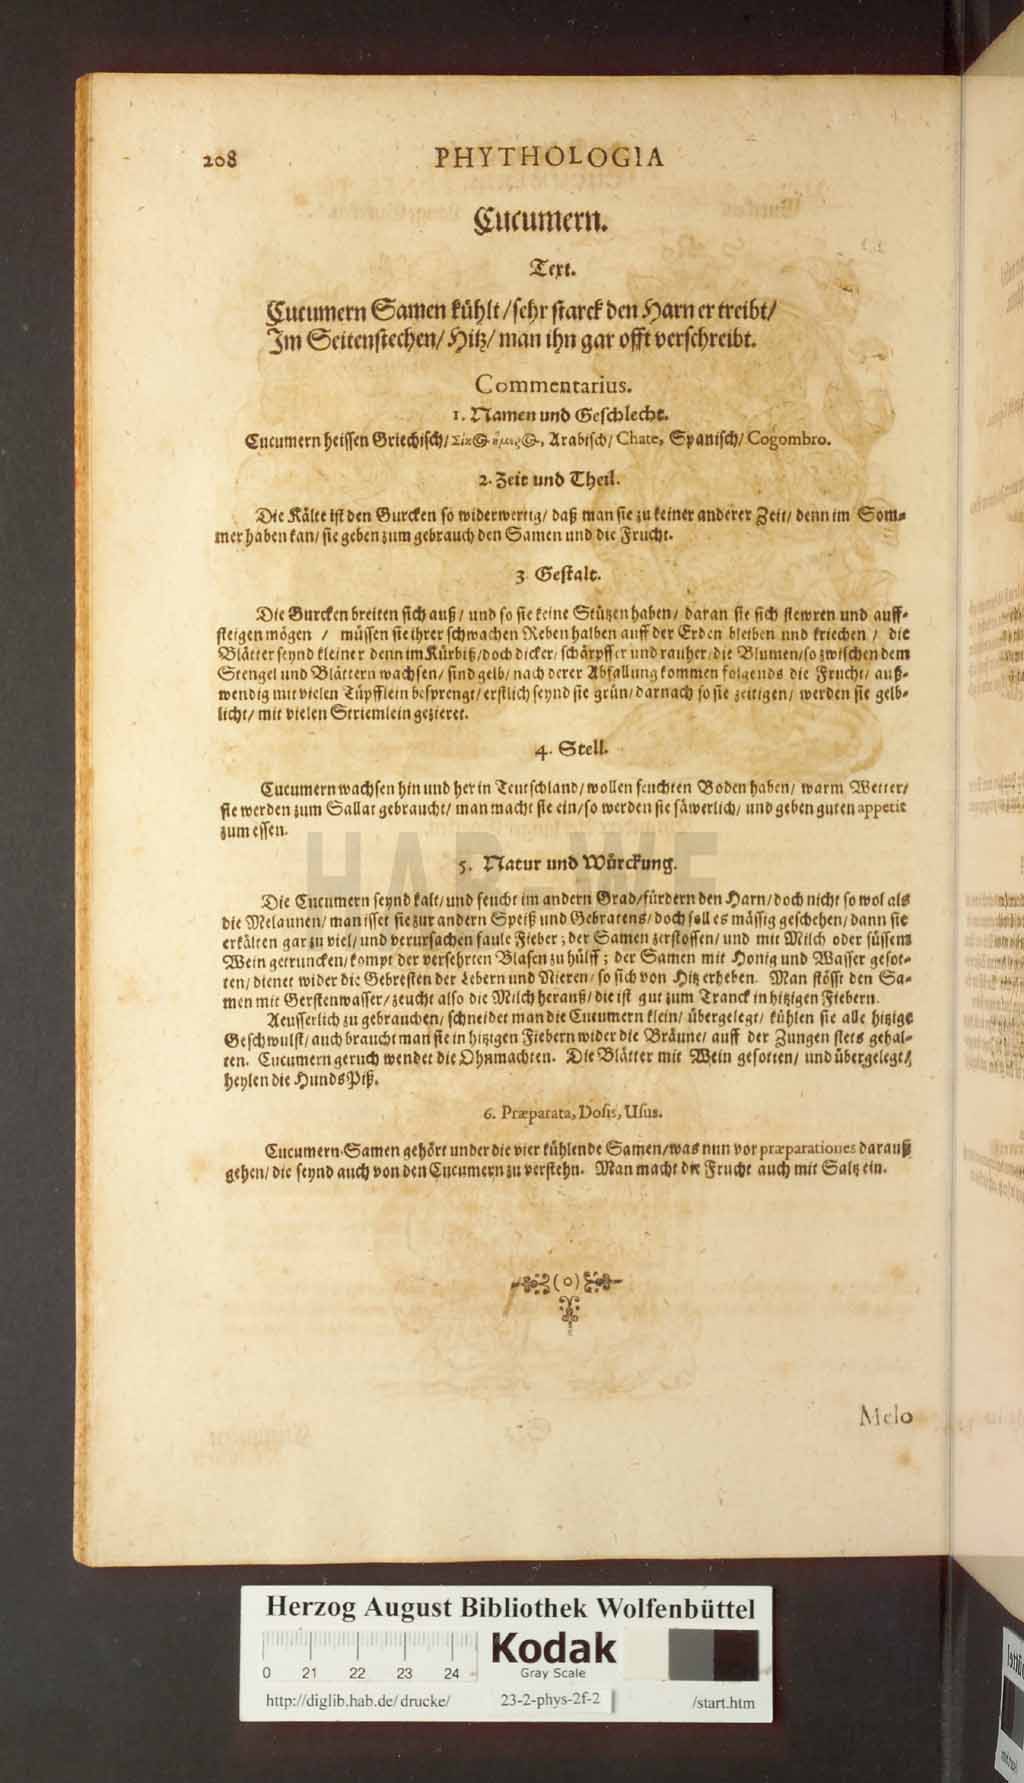 208 PHYTHOLOGIA
Cucumern.
Text.
Cucumern Samen kühlt / sehr starck den Harn er treibt /
Im Seitenstechen / Hitz / man ihn gar offt verschreibt.
Commentarius.
1. Namen und Geschlecht.
Cucumern heissen Griechisch / Arabisch / Chate, Spanisch / Cogombro.
2. Zeit und Theil.
Die Kälte ist den Gurcken so widerwertig / daß man sie zu keiner anderer Zeit / denn im Som-
mer haben kan / sie geben zum gebrauch den Samen und die Frucht.
3 Gestalt.
Die Gurcken breiten sich auß / und so sie keine Stützen haben / daran sie sich stewren und auff-
steigen mögen / müssen sie ihrer schwachen Reben halben auff der Erden bleiben und kriechen / die
Blätter seynd kleiner denn im Kürbiß / doch dicker / schärpffer und rauher / die Blumen / so zwischen dem
Stengel und Blättern wachsen / sind gelb / nach derer Abfallung kommen folgends die Frucht / auß-
wendig mit vielen Tüpfflein besprengt / erstlich seynd sie grün / darnach so sie zeitigen / werden sie gelb-
licht / mit vielen Striemlein gezieret.
4. Stell.
Cucumern wachsen hin und her in Teutschland / wollen feuchten Boden haben / warm Wetter /
sie werden zum Sallat gebraucht / man macht sie ein / so werden sie säwerlich / und geben guten appetit
zum essen.
HAB-WF
5. Natur und Würckung.
Die Cucumern seynd kalt / und feucht im andern Grad / fürdern den Harn / doch nicht so wol als
die Melaunen / man isset sie zur andern Speiß und Gebratens / doch soll es mässig geschehen / dann sie
erkälten gar zu viel / und verursachen faule Fieber ; der Samen zerstossen / und mit Milch oder süssem
Wein getruncken / kompt der versehrten Blasen zu hülff ; der Samen mit Honig und Wasser gesot-
ten / dienet wider die Gebresten der Lebern und Nieren / so sich von Hitz erheben. Man stösst den Sa-
men mit Gerstenwasser / zeucht also die Milch herauß / die ist gut zum Tranck in hitzigen Fiebern.
Aeusserlich zu gebrauchen / schneidet man die Cucumern klein / übergelegt / kühlen sie alle hitzige
Geschwulst / auch braucht man sie in hitzigen Fiebern wider die Bräune / auff der Zungen stets gehal-
ten. Cucumern geruch wendet die Ohnmachten. Die Blätter mit Wein gesotten / und übergelegt /
heylen die Hunds Piß.
6. Præparata, Dosis, Usus.
Cucumern-Samen gehört under die vier kühlende Samen / was nun vor præparationes darauß
gehen / die seynd auch von den Cucumern zu verstehn. Man macht die Frucht auch mit Saltz ein.
(o)
Melo
Herzog August Bibliothek Wolfenbüttel
Kodak
Gray Scale
0 21 22 23 24
http://diglib.hab.de/drucke/ 23-2-phys-2f-2 /start.htm